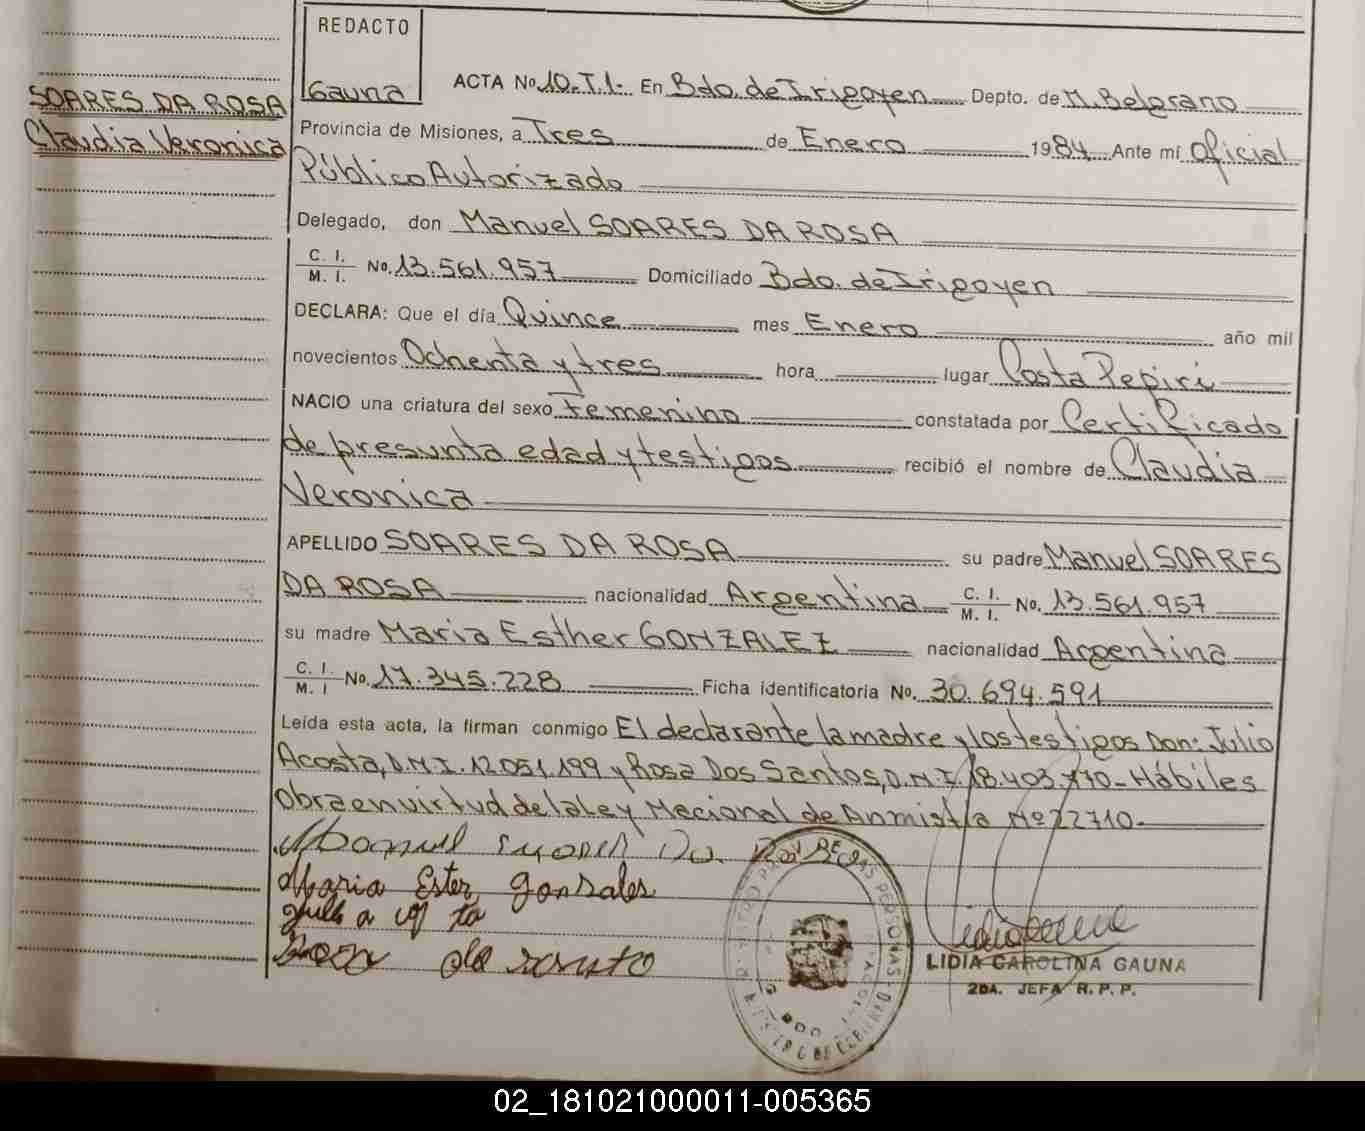 REDACTO
Gauna
SOARES DA ROSA
Claudia Veronica
ACTA No. 10-T.1.- En Bdo. de Irigoyen Depto. de M. Belgrano
Provincia de Misiones, a Tres de Enero 1984 Ante mí Oficial
Público Autorizado
Delegado, don Manuel SOARES DA ROSA
C. I.
M. I. No. 13.561.957 Domiciliado Bdo. de Irigoyen
DECLARA: Que el día Quince mes Enero año mil
novecientos Ochenta y tres hora lugar Costa Pepiri
NACIO una criatura del sexo Femenino constatada por Certificado
de presunta edad y testigos recibió el nombre de Claudia
Veronica
APELLIDO SOARES DA ROSA su padre Manuel SOARES
DA ROSA nacionalidad Argentina C. I. M. I. No. 13.561.957
su madre Maria Esther GONZALEZ nacionalidad Argentina
C. I. M. I No. 17.345.228 Ficha identificatoria No. 30.694.591
Leída esta acta, la firman conmigo El declarante la madre y los testigos Don: Julio
Acosta, D.N.I. 12.051.199 y Rosa Dos Santos, D.N.I. 18.403.770- Hábiles
Obra en virtud de la ley Nacional de Anmistia Nº 22710.-
Maria Ester gonsales
LIDIA CAROLINA GAUNA
2DA. JEFA R. P. P.
02_181021000011-005365